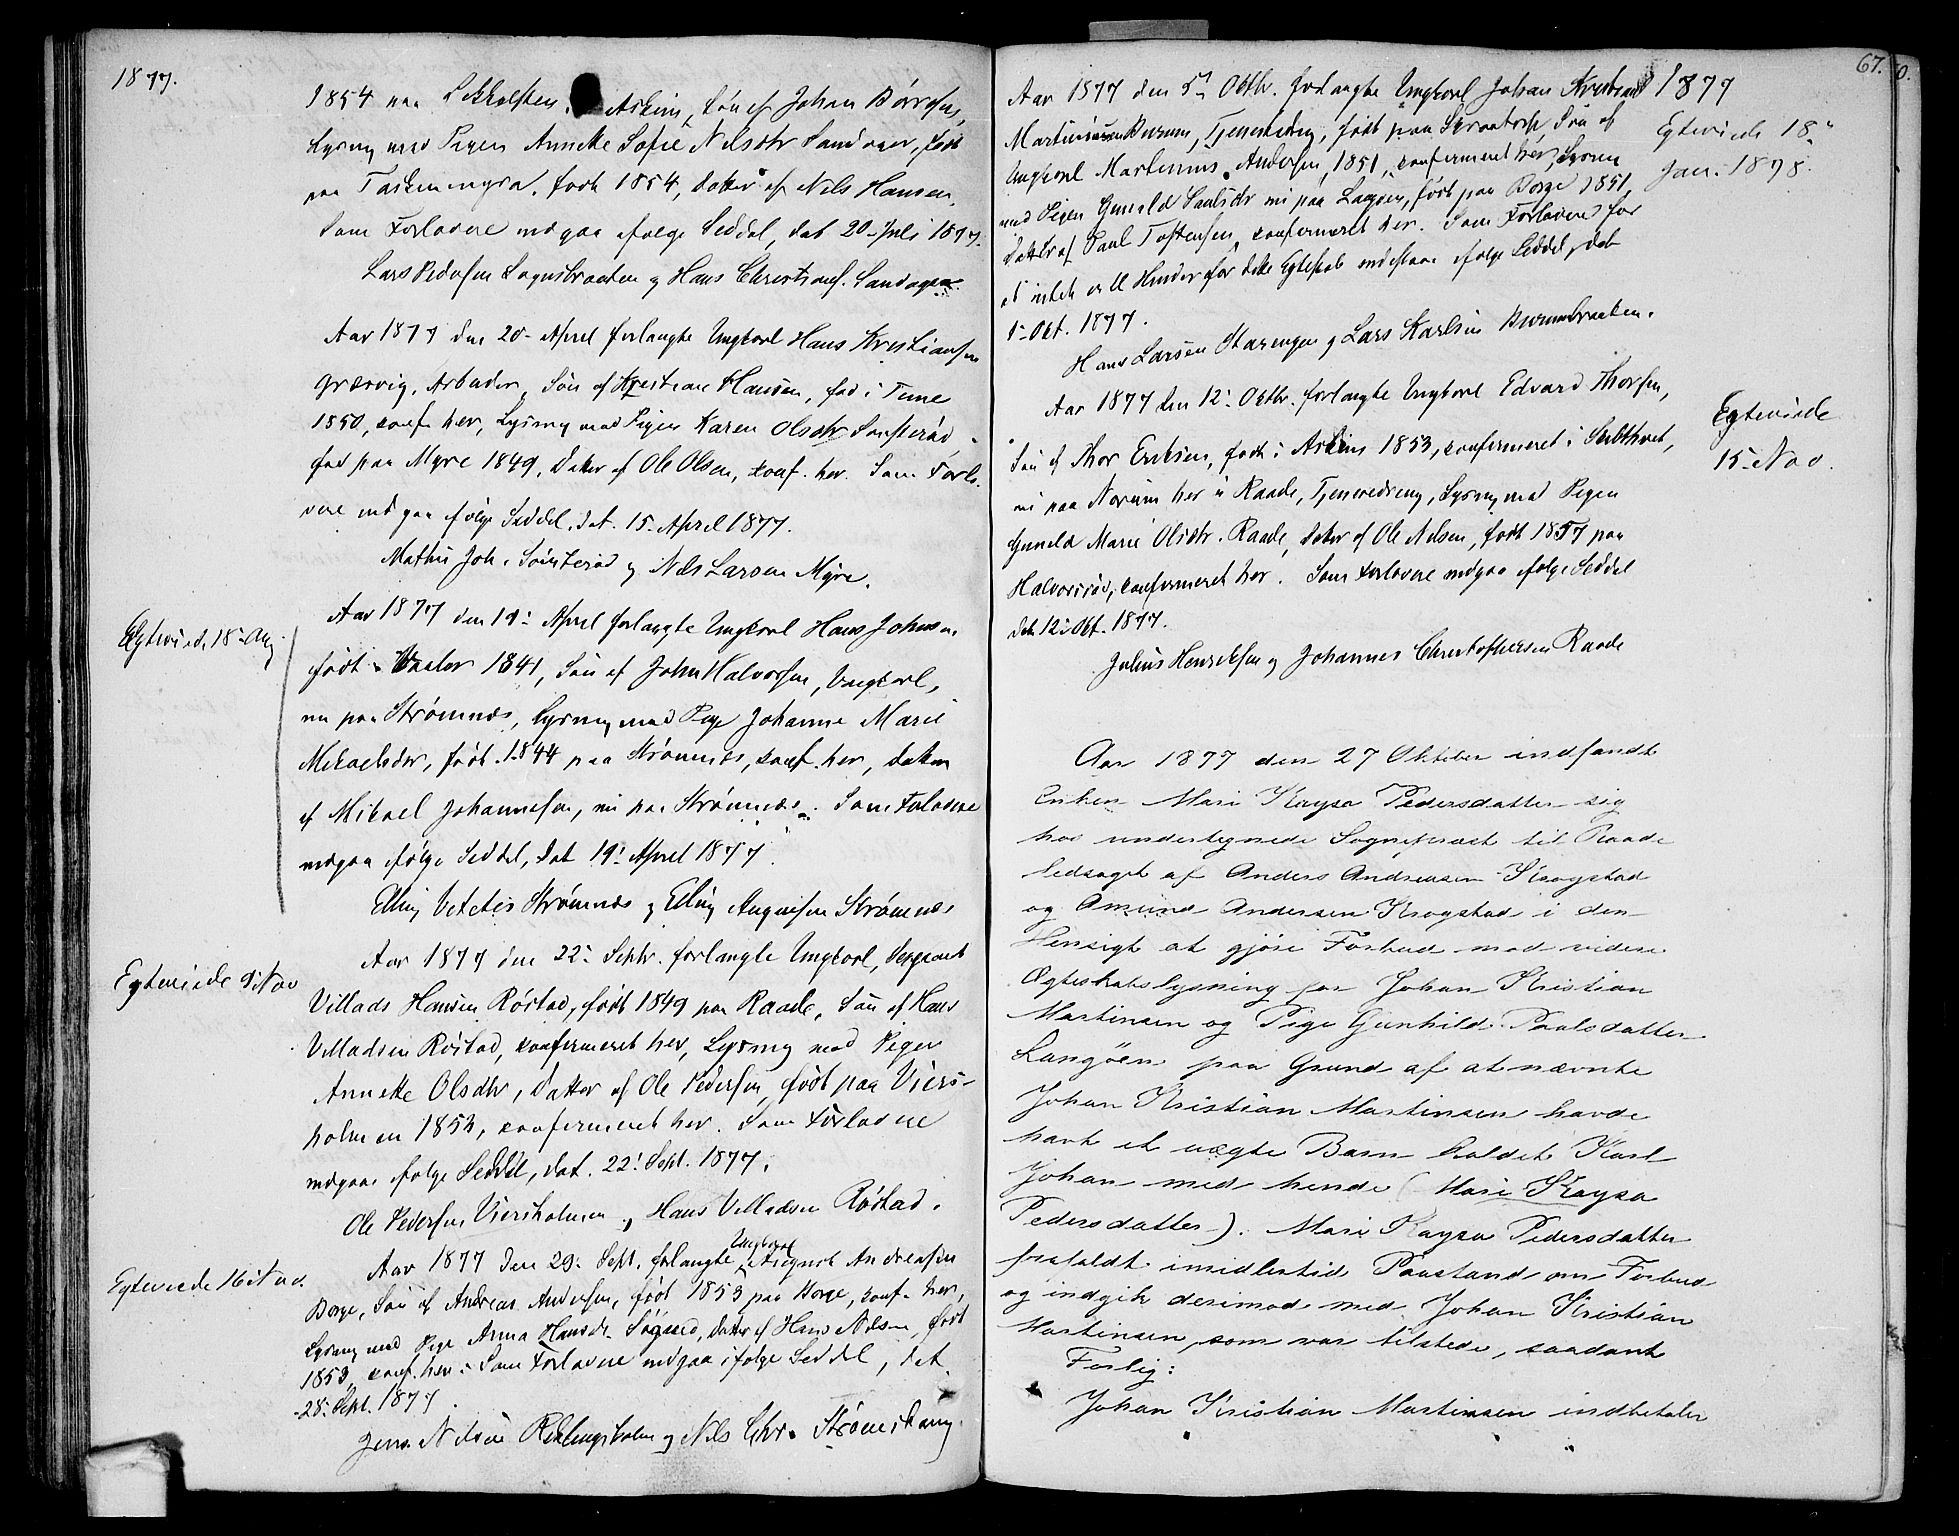 1877.
1854 paa Askim, Søn af Johan Børresen,
Lysning med Pigen Annette Sofie Nilsdtr Sandager, født
paa født 1854, Datter af Nils Hansen.
Som Forlovere indgaa ifølge Seddel, dat 20 Juli 1877.
Lars Pedersen Sognsbraaten og Hans Christians. Sandager.
Aar 1877 den 20 April forlangte Ungkarl Hans Kristiansen
Græsvig, Arbeider, Søn af Kristian Hansen, fød i Tune
1850, conf. her, Lysning med Pigen Karen Olsdtr Sønsterød,
fød paa Myre 1849, Datter af Ole Olsen, conf. her. Som Forlo-
vere indgaa ifølge Seddel, dat. 15 April 1877.
Mathis Joh. Sønsterød og Nils Larsen Myre.
Egteviede 18 Aug
Aar 1877 den 19 April forlangte Ungkarl Hans Johnsen,
født i Vaaler 1841, Søn af John Halvorsen, Ungkarl,
nu paa Strømnæs, Lysning med Pige Johanne Marie
Mikaelsdtr, født 1844 paa Strømnæs, conf. her, Datter
af Mikael Johannesen, nu paa Strømnæs. Som Forlovere
indgaa ifølge Seddel, dat 19 April 1877.
Elling Strømnæs og Elling Strømnæs
Egteviede 9 Nov
Aar 1877 den 22 Septr. forlangte Ungkarl, Sergeant
Villads Hansen Røstad, født 1849 paa Raade, Søn af Hans
Villadsen Røstad, confirmeret her, Lysning med Pigen
Annette Olsdtr, Datter af Ole Pedersen, født paa Viers-
holmen 1853, confirmeret her. Som Forlovere
indgaa ifølge Seddel, dat. 22 Sept. 1877.
Ole Pedersen Viersholmen, Hans Villadsen Røstad.
Egteviede 16 Nov.
Aar 1877 den 29. Sept. forlangte Ungkarl August Andreasen
Borge, Søn af Andreas Andersen, født 1853 paa Borge, conf. her,
Lysning med Pige Anna Hansdtr. Datter af Hans Nilsen, født
1853, conf. her. Som Forlovere indgaa ifølge Seddel, dat.
28 Sept. 1877.
Jens Nilsen og Nils Chr. Strømshaug.
67.
1877
Aar 1877 den 5 Oktbr. forlangte Ungkarl Johan Kristian
Martiniusen Burum, Tjenestedreng, født paa Søn af
Ungkarl Martinius Andersen, 1851, confirmeret her, Lysning
med Pigen Gunild Paulsdtr nu paa Langøen, født paa Borge 1851,
Datter af Paul Tostensen, confirmeret her. Som Forlovere for
at intet er til Hinder for dette Egteskab indestaar ifølge Seddel, dat
1 Okt. 1877.
Hans Larsen og Lars Karlsen Burumbraaten.
Egteviede 18
Jan. 1878.
Aar 1877 den 12 Oktbr. forlangte Ungkarl Edvard Thorsen,
Søn af Thor Eriksen, født i Askim 1853, confirmeret i Skibthvet,
nu paa Norum her i Raade, Tjenestedreng, Lysning med Pigen
Gunild Marie Olsdtr. Raade, Datter af Ole Nilsen, født 1857 paa
Halvorsrød, confirmeret her. Som Forlovere indgaa ifølge Seddel
dat. 12 Okt. 1877.
Julius Henriksen og Johannes Christophersen Raade
Egteviede
15 Nov.
Aar 1877 den 27 Oktober indfandt
Enken Mari Kaysa Pedersdatter sig
hos undertegnede Sognepræst til Raade
ledsaget af Anders Andreasen Krogstad
og Amund Andersen Krogstad i den
Hensigt at gjøre Forbud mod videre
Ægteskabslysning for Johan Kristian
Martinsen og Pige Gunhild Paalsdatter
Langøen paa Grund af at nævnte
Johan Kristian Martinsen havde
havt et uægte Barn kaldet Karl
Johan med hende (Mari Kaysa
Pedersdatter). Mari Kaysa Pedersdatter
frafaldt imidlertid Paastand om Forbud
og indgik derimod med Johan Kristian
Martinsen, som var tilstede, saadant
Forlig:
Johan Kristian Martinsen indbetaler